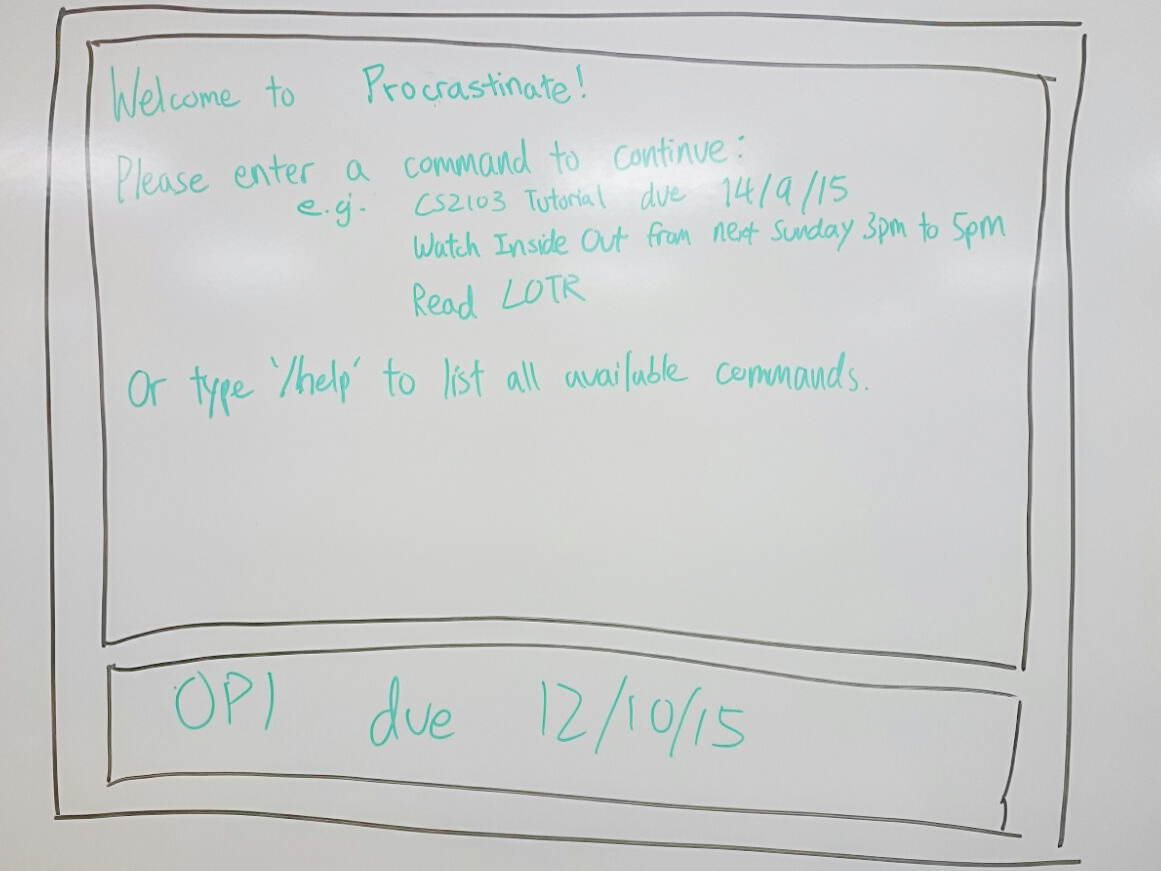 Welcome to Procrastinate!
Please enter a command to continue:
e.g. CS2103 Tutorial due 14/9/15
Watch Inside Out from next Sunday 3pm to 5pm
Read LOTR
Or type '/help' to list all available commands.
OP1 due 12/10/15